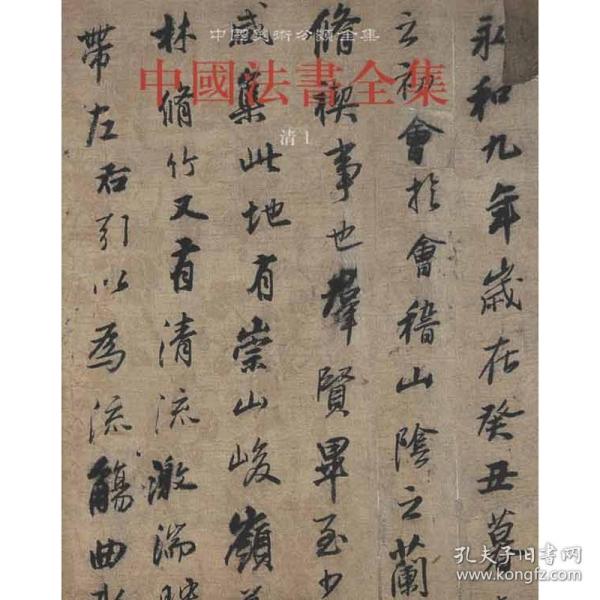 中國美術分類全集
中國法書全集
清1
永和九年歲在癸丑暮
之初會於會稽山陰之蘭
脩禊事也群賢畢至少
咸集此地有崇山峻嶺
林脩竹又有清流激湍映
帶左右引以為流觴曲水
孔夫子旧书网
www.kongfz.com